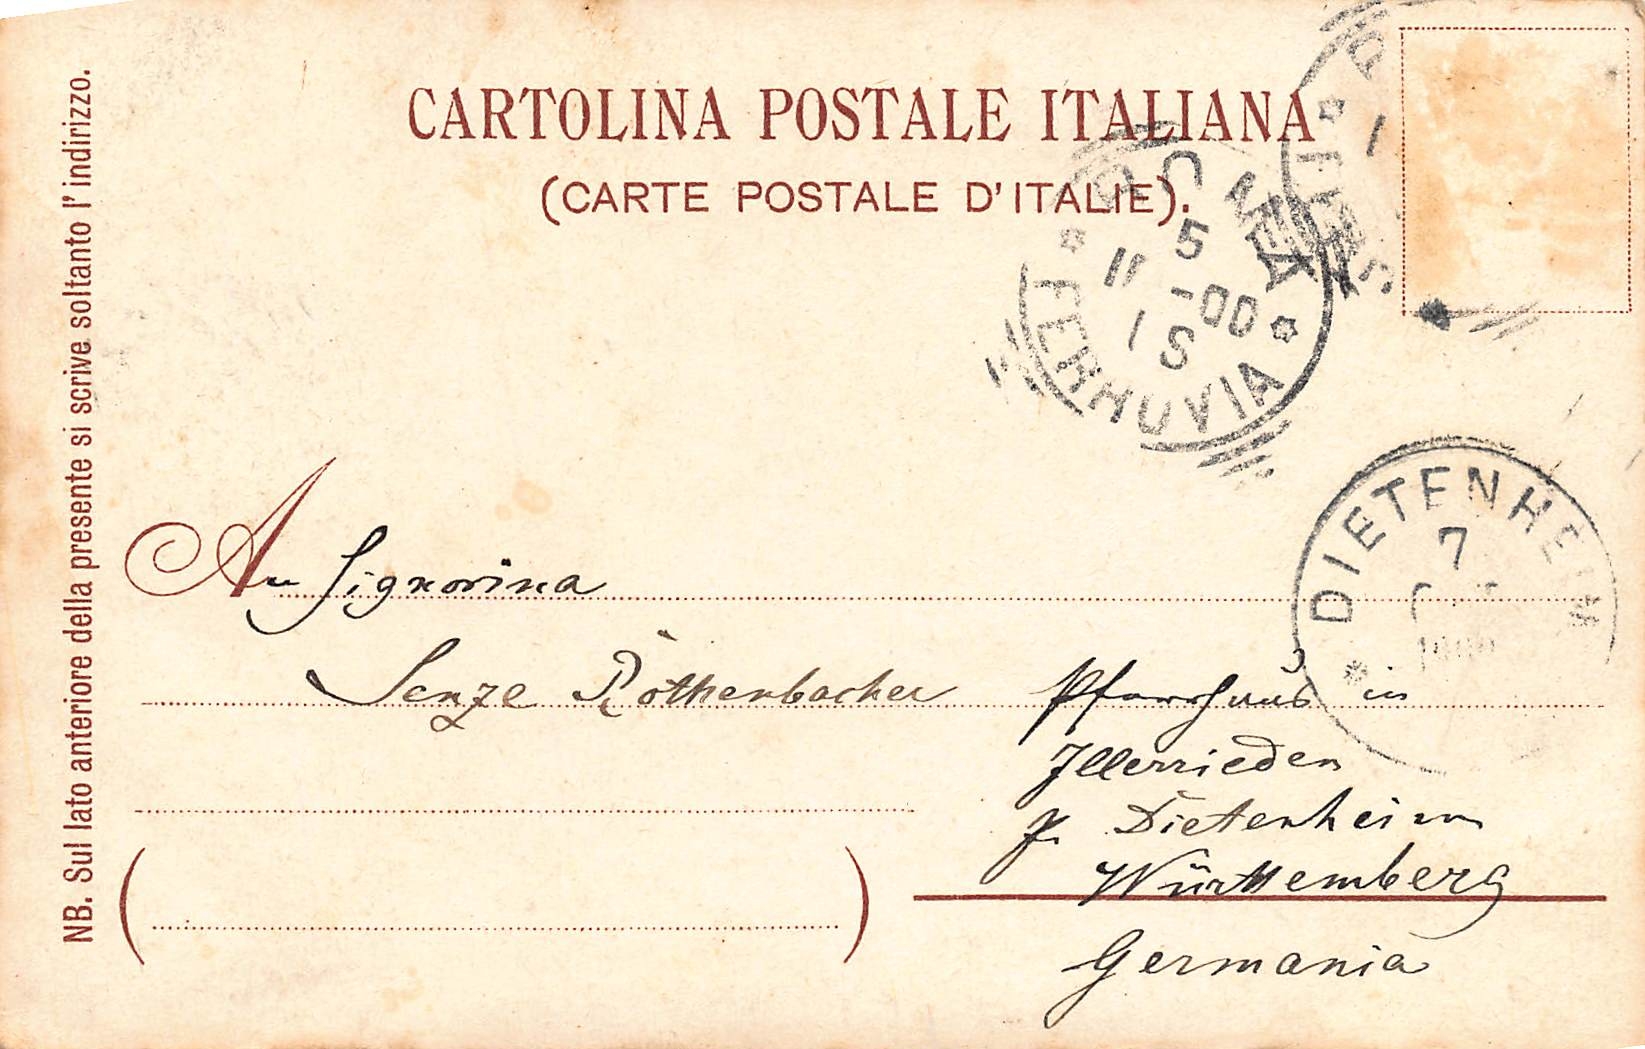 CARTOLINA POSTALE ITALIANA
(CARTE POSTALE D'ITALIE).
NB. Sul lato anteriore della presente si scrive soltanto l'indirizzo.
5
11 -00
1 S
FERROVIA
DIETENHEIM
7
An Signorina
Senze Rothenbacher
Pfarrhaus in
Illerrieden
P. Dietenheim
Württemberg
Germania